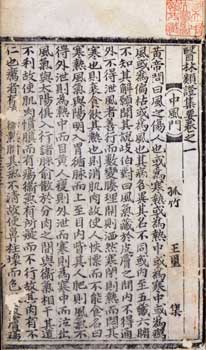 醫林類證集要卷之一
孤竹 王璽 集
中風門
黃帝問曰風之傷人也或為寒熱或為熱中或為寒中或為癘
風或為偏枯或為風也其病各異其名不同或內至五藏六腑
不知其解願聞其說岐伯對曰風氣藏於皮膚之間內不得通
外不得泄風者善行而數變腠理開則洒然寒閉則熱而悶其
寒也則衰食飲其熱也則消肌肉故使人怢慄而不能食名曰
寒熱風氣與陽明入胃循脉而上至目內眥其人肥則風氣不
得外泄則為熱中而目黃人瘦則外泄而寒則為寒中而泣出
風氣與太陽俱入行諸脉俞散於分肉之間與衛氣相干其道
不利故使肌肉憤䐜而有瘍衛氣有所凝而不行故其肉有不
仁也癘者有榮氣熱胕其氣不清故使鼻柱壞而色敗皮膚瘍